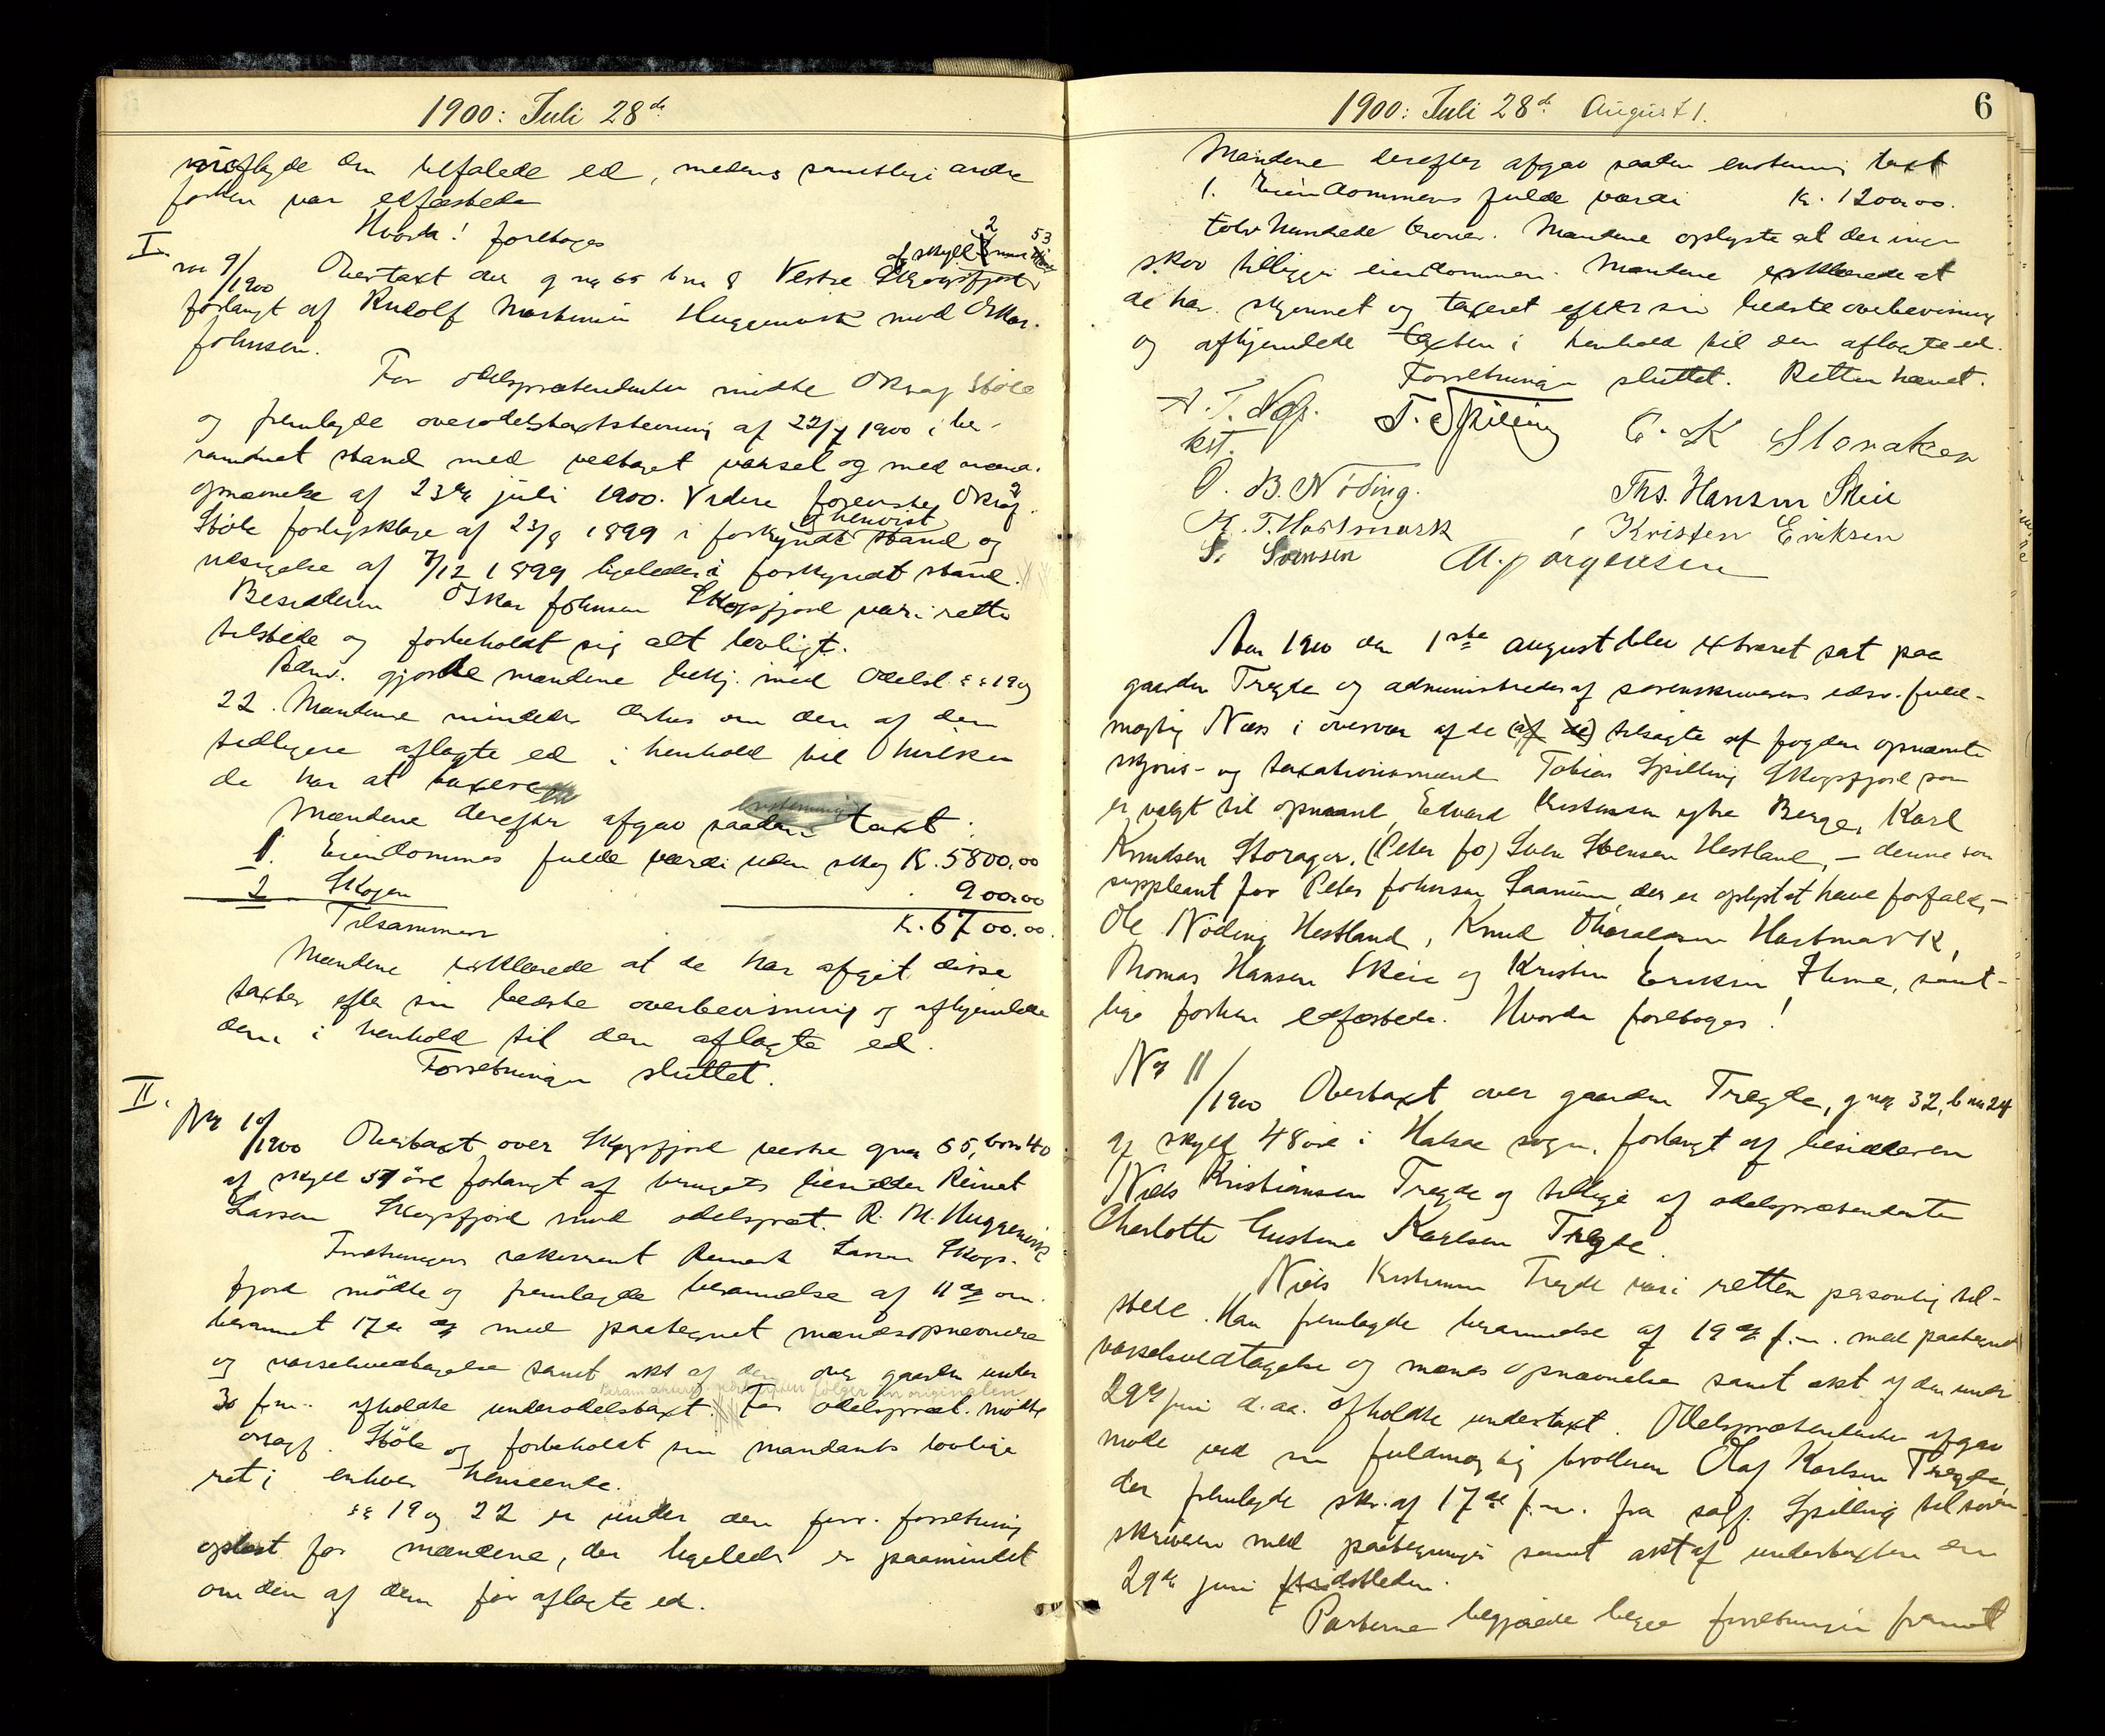 1900: Juli 28de
aflagde den befalede ed, medens samtlige andre
forhen var edfæstede
Hvorda! foretoges
I.
No 9/1900 Overtaxt over g no 65 b no 8 Vestre Skogsfjord
af skyld 2 mark 53
forlangt af Rudolf Martinius Huggenvik mod Oskar
Johnsen.
For odelsprætendenten mødte Orsagf Støle
og fremlagde overodelstaxtstevning af 22/7 1900 i be-
rammet stand med vedtaget varsel og med mænd.
opnævnelse af 23de juli 1900. Videre foreviste Orsagf
og henvist
Støle forligsklage af 23/9 1899 i forkyndt stand og
udsigelse af 7/12 1899 ligeledes i forkyndt stand.
Besidderen Oskar Johnsen Skogsfjord var i rette
tilstede og forbeholdt sig alt lovligt.
Adm. gjorde mændene bekj. med Odelsl. §§ 19 og
22. Mændene mindedes derhos om den af dem
tidligere aflagte ed i henhold til hvilken
de har at taxere
Mændene derefter afgav saadan enstemmig taxt:
1. Eiendommens fulde værdi uden skog Kr. 5800,00
2 Skogen 900,00
Tilsammen Kr. 6700,00.
Mændene erklærede at de har afgit disse
taxter efter sin bedste overbevisning og afhjemlede
dem i henhold til den aflagte ed.
Forretningen sluttet.
II.
No 10/1900 Overtaxt over Skogsfjord vestre g no 65, b no 40
af skyld 57 öre forlangt af brugets besidder Reinert
Larsen Skogsfjord mod odelspræt. R. M. Huggenvik
Forretningens rekvirent Reinert Larsen Skogs-
fjord mödte og fremlagde berammelse af 11de om
berammet 17de med paategnet mændsopnævnelse
og varselsvedtagelse samt akt af den over gaarden under
følger in originalen
30 f.m. afholdte underodelstaxt. For odelspræt. mödte
orsagf. Støle og forbeholdt sin mandants lovlige
ret i enhver henseende.
§§ 19 og 22 er under den forr. forretning
oplæst for mændene, der ligeledes er paamindet
om den af dem för aflagte ed.
1900: Juli 28de August 1.
6
Mændene derefter afgav saadan enstemmig taxt
1. Eiendommens fulde værdi Kr. 1200,00.
tolv hundrede kroner. Mændene oplyste at der ingen
skov tilligger eiendommen. Mændene erklærede at
de har skjönnet og taxeret efter sin bedste overbevisning
og afhjemlede taxten i henhold til den aflagte ed.
Forretningen sluttet. Retten hævet.
A. T. Næss. T. Spilling C. K Storaker
kst.
O. B. Nöding. Ths. Hansen Skeie
K. T. Hartmark Kristen Eriksen
S. Svensen M. Jørgensen
Aar 1900 den 1ste august blev extraret sat paa
gaarden Tregde og administredes af sorenskriverens edsv. fuld-
mægtig Næss i overvær af de (af de) tilsagte af fogden opnævnte
skjöns- og taxationsmænd Tobias Spilling Skogsfjord som
er valgt til opmand, Edvard Kristensen ytre Berge, Karl
Knudsen Storager, (Peter Jo) Sven Svensen Hestland, – denne som
suppleant for Peter Johnsen Saanum, der er oplyst at have forfald, –
Ole Nöding Hestland, Knud Tharaldsen Hartmark,
Thomas Hansen Skeie og Kristen Eriksen Ihme, samt-
lige forhen edfæstede. Hvorda foretoges!
No 11/1900 Overtaxt over gaarden Tregde, g no 32, b no 24
af skyld 48 öre i Halsaa sogn, forlangt af besidderen
Niels Kristiansen Tregde og tillige af odelsprætendenten
Charlotte Gustine Karlsen Tregde.
Niels Kristiansen Tregde var i retten personlig til-
stede. Han fremlagde berammelse af 19de f.m. med paategnet
varselsvedtagelse og mændsopnævnelse samt akt af den under
29de juni d. aa. afholdte undertaxt. Odelsprætendenten afgav
möde ved sin fuldmægtig broderen Olaf Karlsen Tregde,
der fremlagde skr. af 17de f.m. fra sagf. Spilling til soren
skriveren med paategninger samt akt af undertaxten den
29de juni sidstleden.
Parterne begjærede begge forretningen fremmet